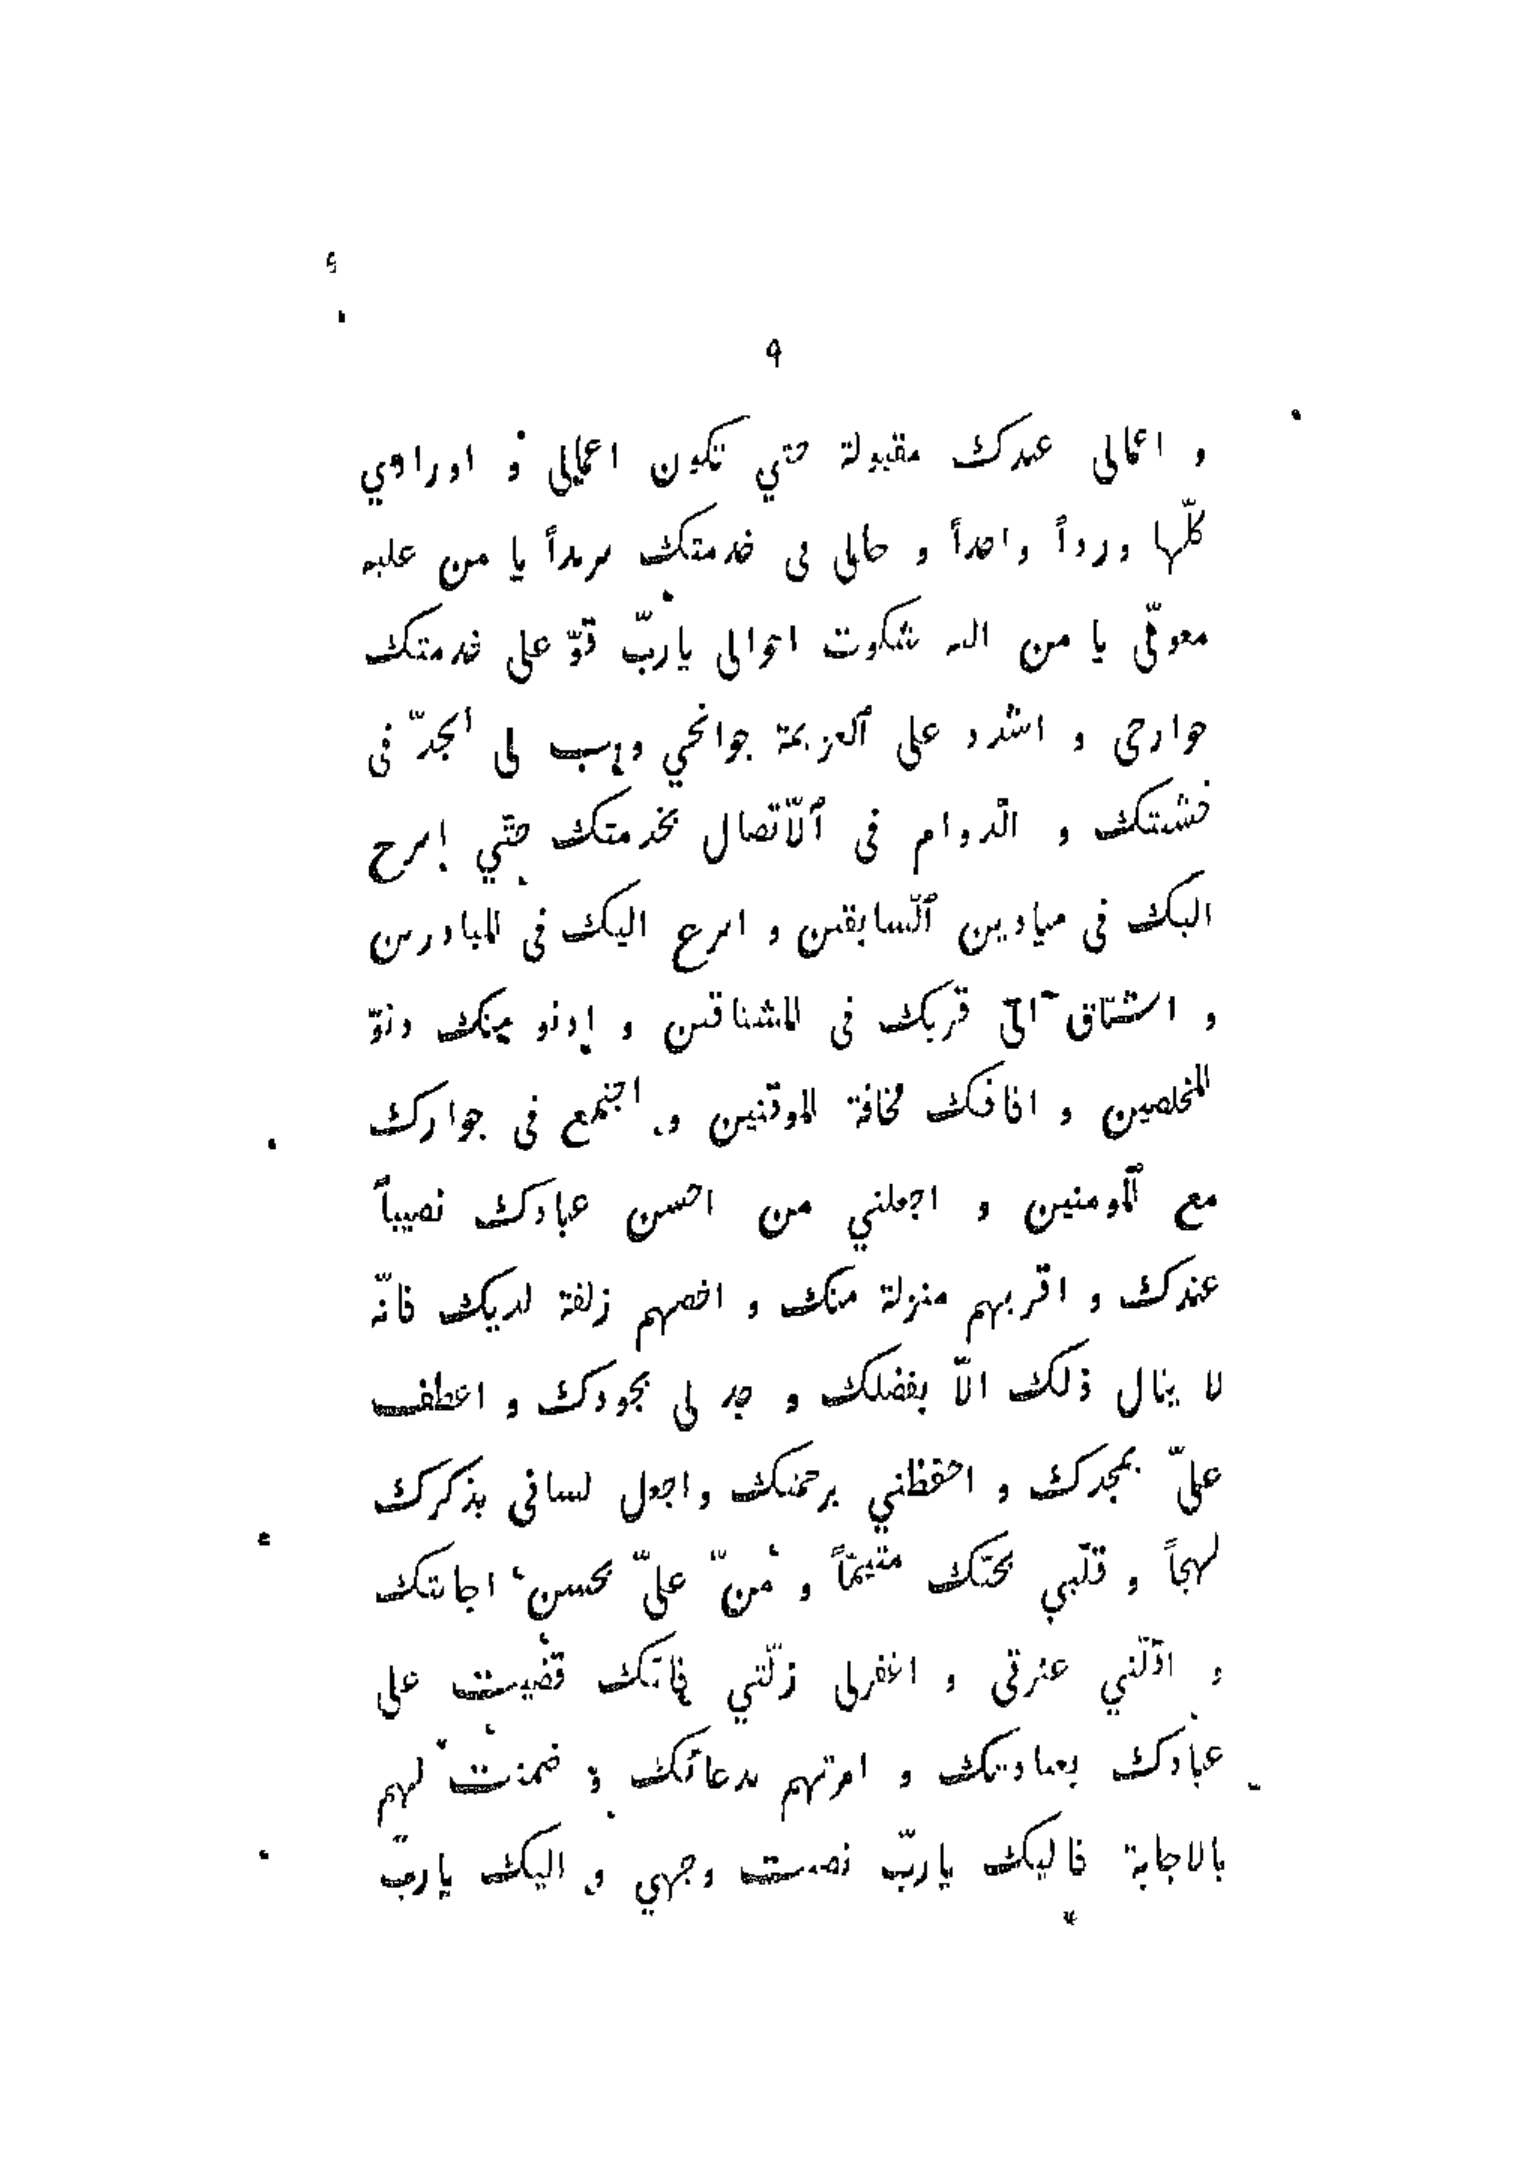 ٩
و اعمالى عبدك مقبولة حتي تكون اعمالي و اورادي
كلّها ورداً واحداً و حالى فى خدمتك سرمداً يا من عليه
معوّلى يا من اليه شكوت احوالى ياربّ قوّ على خدمتك
جوارحى و اشدد على العزيمة جوانحي وهب لى الجدّ فى
خشيتك و الّدوام فى الاّتصال بخدمتك حتّي اسرح
اليك فى ميادين السّابقين و اسرع اليك فى المبادرين
و اشتاق الى قربك فى المشتاقين و ادنو منك دنوّ
المخلصين و اخافك مخافة الموقنين و اجتمع فى جوارك
مع المومنين و اجعلني من احسن عبادك نصيباً
عندك و اقربهم منزلة منك و اخصهم زلفة لديك فانّه
لا ينال ذلك الاّ بفضلك و جد لى بجودك و اعطف
علىّ بمجدك و احفظني برحمتك واجعل لسانى بذكرك
لهجاً و قلبي بحبّك متيمّاً و منّ علىّ بحسن اجابتك
و اقلني عثرتى و اغفرلى زلّتي فانّك قضيت على
عبادك بعبادتك و امرتهم بدعائك و ضمنت لهم
بالاجابة فاليك ياربّ نصبت وجهي و اليك ياربّ